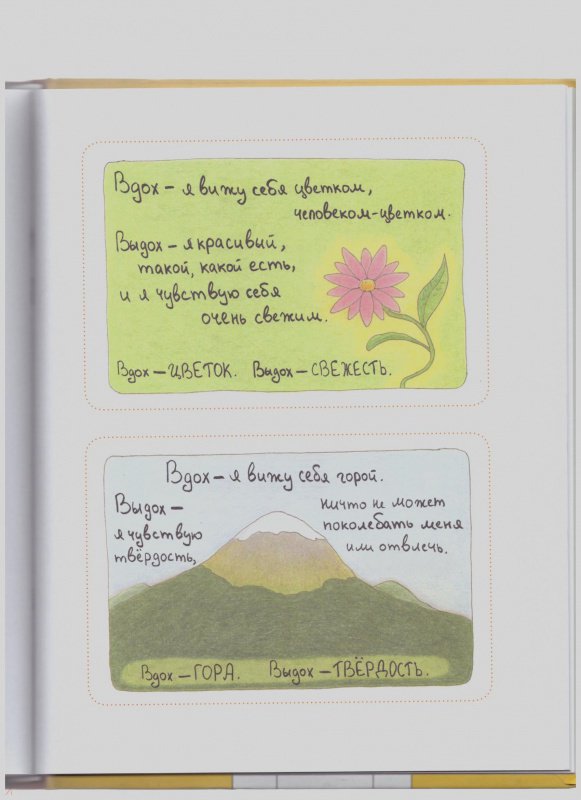 Вдох – я вижу себя цветком,
человеком-цветком.
Выдох – я красивый,
такой, какой есть,
и я чувствую себя
очень свежим.
Вдох – ЦВЕТОК. Выдох – СВЕЖЕСТЬ.
Вдох – я вижу себя горой.
Выдох –
я чувствую
твёрдость,
ничто не может
поколебать меня
или отвлечь.
Вдох – ГОРА. Выдох – ТВЁРДОСТЬ.